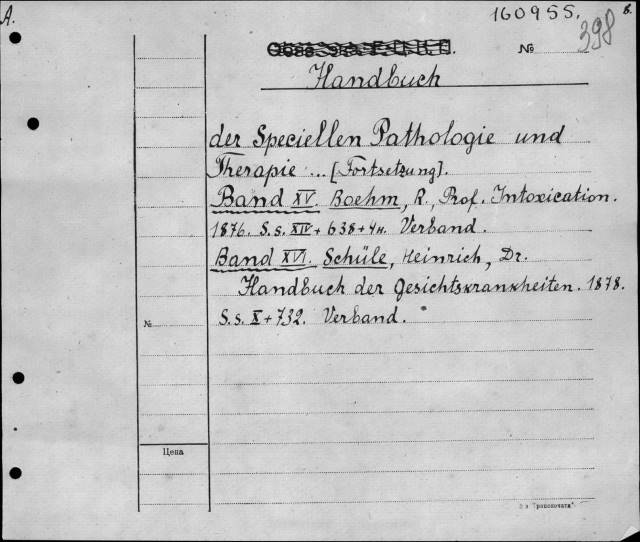 A.
160955.
в.
№ 398
Handbuch
der Speciellen Pathologie und
Therapie ... [Fortsetzung].
Band XV. Boehm, R., Prof. Intoxication.
1876. S.s. XIV + 638 + 4н. Verband.
Band XVI. Schüle, Heinrich, Dr.
Handbuch der Gesichtskrankheiten. 1878.
№ S.s. X + 732. Verband.
Цена